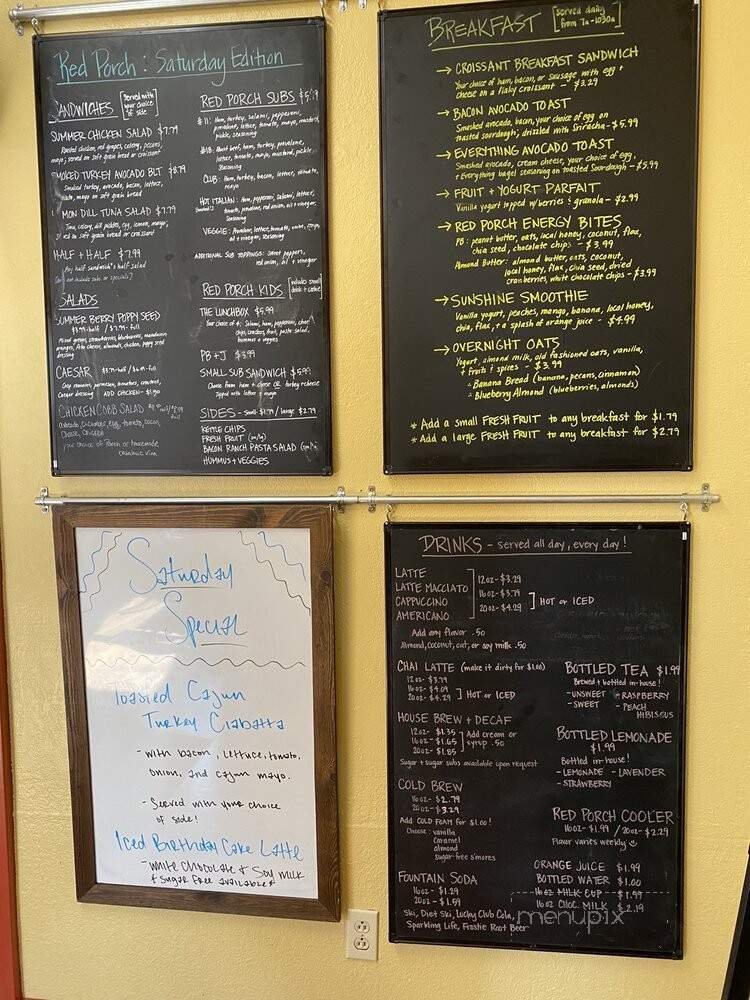 Red Porch : Saturday Edition
SANDWICHES [served with your choice of side]
SUMMER CHICKEN SALAD $7.79
Roasted chicken, red grapes, celery, pecans,
mayo; served on soft grain bread or croissant
SMOKED TURKEY AVOCADO BLT $8.79
Smoked turkey, avocado, bacon, lettuce,
tomato, mayo on soft grain bread
MON DILL TUNA SALAD $7.79
Tuna, celery, dill pickles, egg, lemon, mayo;
on soft grain bread or croissant
HALF + HALF $7.99
Any half sandwich + half salad
SALADS
SUMMER BERRY POPPY SEED
$3.99-half / $7.99-full
Mixed greens, strawberries, blueberries, mandarin
oranges, feta cheese, almonds, chicken, poppy seed
dressing
CAESAR
Crisp romaine, parmesan, tomatoes, croutons,
Caesar dressing ADD CHICKEN - $1.90
CHICKEN COBB SALAD
avocado, cucumber, egg, tomato, bacon,
cheese, chicken
your choice of Ranch or homemade
balsamic vin.
RED PORCH SUBS
#11: Ham, turkey, salami, pepperoni,
provolone, lettuce, tomato, mayo, mustard,
pickle, seasoning
#18: Roast beef, ham, turkey, provolone,
lettuce, tomato, mayo, mustard, pickle,
seasoning
CLUB: Ham, turkey, bacon, lettuce, tomato,
mayo
HOT ITALIAN: Ham, pepperoni, salami, lettuce,
tomato, provolone, red onion, oil + vinegar,
seasoning
VEGGIE: Provolone, lettuce, tomato, onion, crisps,
oil + vinegar, seasoning
ADDITIONAL SUB TOPPINGS: Sweet peppers,
red onion, oil + vinegar
RED PORCH KIDS [includes small drink + cookie]
THE LUNCHBOX $5.99
Your choice of: Salami, ham, pepperoni, cheese
chips, crackers, fruit, pasta salad,
hummus + veggies
PB + J $3.99
SMALL SUB SANDWICH $5.99
Choose from ham + cheese OR turkey + cheese
Topped with lettuce + mayo
SIDES - Small-$1.79 / large $2.79
KETTLE CHIPS
FRESH FRUIT
BACON RANCH PASTA SALAD
HUMMUS + VEGGIES
BREAKFAST [served daily from 7a-1030a]
→ CROISSANT BREAKFAST SANDWICH
Your choice of ham, bacon, or sausage with egg +
cheese on a flaky croissant - $3.29
→ BACON AVOCADO TOAST
Smashed avocado, bacon, your choice of egg on
toasted sourdough; drizzled with Sriracha - $5.99
→ EVERYTHING AVOCADO TOAST
Smashed avocado, cream cheese, your choice of egg,
+ everything bagel seasoning on toasted sourdough - $5.99
→ FRUIT + YOGURT PARFAIT
Vanilla yogurt topped w/berries + granola - $2.99
→ RED PORCH ENERGY BITES
PB: peanut butter, oats, local honey, coconut, flax,
chia seed, chocolate chips - $3.99
Almond Butter: almond butter, oats, coconut,
local honey, flax, chia seed, dried
cranberries, white chocolate chips - $3.99
→ SUNSHINE SMOOTHIE
Vanilla yogurt, peaches, mango, banana, local honey,
chia, flax, + a splash of orange juice - $4.99
→ OVERNIGHT OATS
Yogurt, almond milk, old fashioned oats, vanilla,
+ fruits + spices - $3.99
- Banana Bread (banana, pecans, cinnamon)
- Blueberry Almond (blueberries, almonds)
* Add a small FRESH FRUIT to any breakfast for $1.79
* Add a large FRESH FRUIT to any breakfast for $2.79
Saturday
Special
Toasted Cajun
Turkey Ciabatta
- with bacon, lettuce, tomato,
onion, and cajun mayo.
- Served with your choice
of side!
Iced Birthday Cake Latte
- white chocolate + soy milk
* sugar free available *
DRINKS - served all day, every day!
LATTE
LATTE MACCIATO
CAPPUCCINO
AMERICANO
12oz - $3.29
16oz - $3.79
20oz - $4.29 ] HOT or ICED
Add any flavor .50
Almond, coconut, oat, or soy milk .50
CHAI LATTE (make it dirty for $1.00)
12oz - $3.79
16oz - $4.09
20oz - $4.29 ] HOT or ICED
HOUSE BREW + DECAF
12oz - $1.35
16oz - $1.65
20oz - $1.85
Add cream or
syrup .50
Sugar + sugar subs available upon request
COLD BREW
16oz - $2.79
20oz - $3.29
Add COLD FOAM for $1.00!
Choose: vanilla
caramel
almond
sugar-free s'mores
FOUNTAIN SODA
16oz - $1.29
20oz - $1.59
Ski, Diet Ski, Lucky Club Cola,
Sparkling Life, Frostie Root Beer
BOTTLED TEA $1.99
Brewed + bottled in-house!
- UNSWEET - RASPBERRY
- SWEET - PEACH
HIBISCUS
BOTTLED LEMONADE
$1.99
Bottled in-house!
- LEMONADE - LAVENDER
- STRAWBERRY
RED PORCH COOLER
16oz - $1.99 / 20oz - $2.29
Flavor varies weekly
ORANGE JUICE $1.99
BOTTLED WATER $1.00
16 oz MILK CUP - $1.99
16 oz CHOC MILK $2.19
menupix